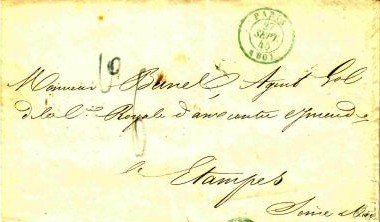 PARIS
27
SEPT.
45
(60)
Monsieur Banel Agent Gal
de la Cie Royale d'assce contre l'Incendie
à Etampes
Seine & Oise